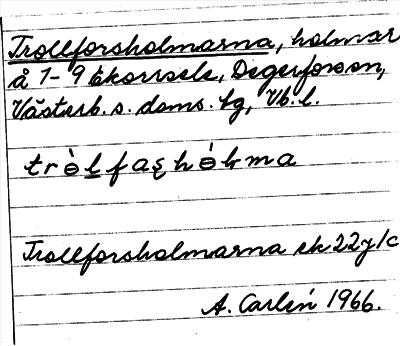 Trollforsholmarna, holmar
å 1-9 Ekorrsele, Degerfors sn,
Västerb. s. doms. tg, Vb. l.
Trollforsholmarna ek 22 y/c
A. Carlén 1966.